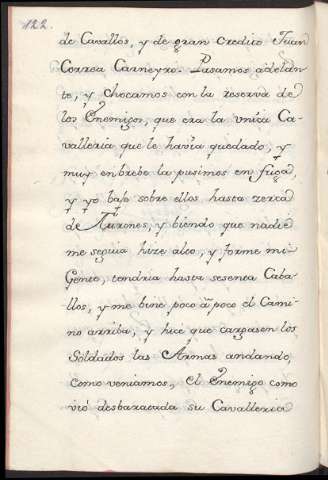 122.
de Cavallos, y de gran credito Juan
Correa Carneyro. Pasamos adelan-
te, y chocamos con la reserva de
los Enemigos, que era la vnica Ca-
valleria que le havia quedado, y
muy en brebe la pusimos en fuga,
y yo bajo sobre ellos hasta zerca
de Aurones, y biendo que nadie
me seguia hize alto, y forme mi
Gente, tendria hasta sesenta Caba-
llos, y me bine poco â poco el Cami-
no arriba, y hice que cargasen los
Soldados las Armas andando,
como veniamos, el Enemigo como
vió desbaratada su Cavalleria